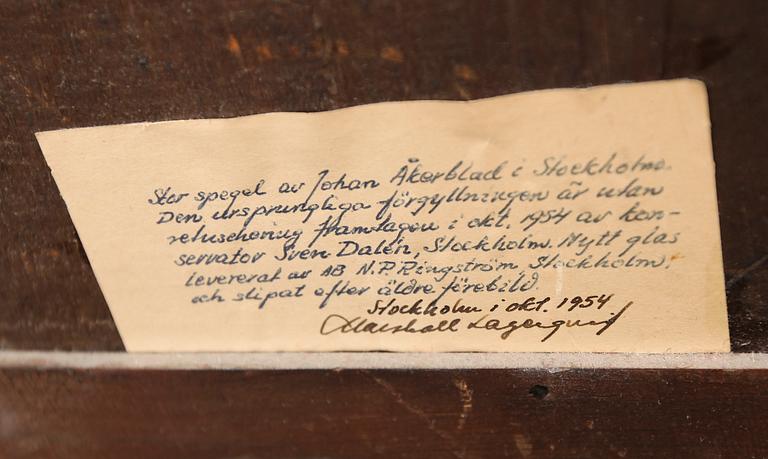 Stor spegel av Johan Åkerblad i Stockholm.
Den ursprungliga förgyllningen är utan
retuschering framtagen i okt. 1954 av kon-
servator Sven Dalén, Stockholm. Nytt glas
levererat av AB N.P. Ringström, Stockholm,
och slipat efter äldre förebild.
Stockholm i okt. 1954
Marshall Lagerquist